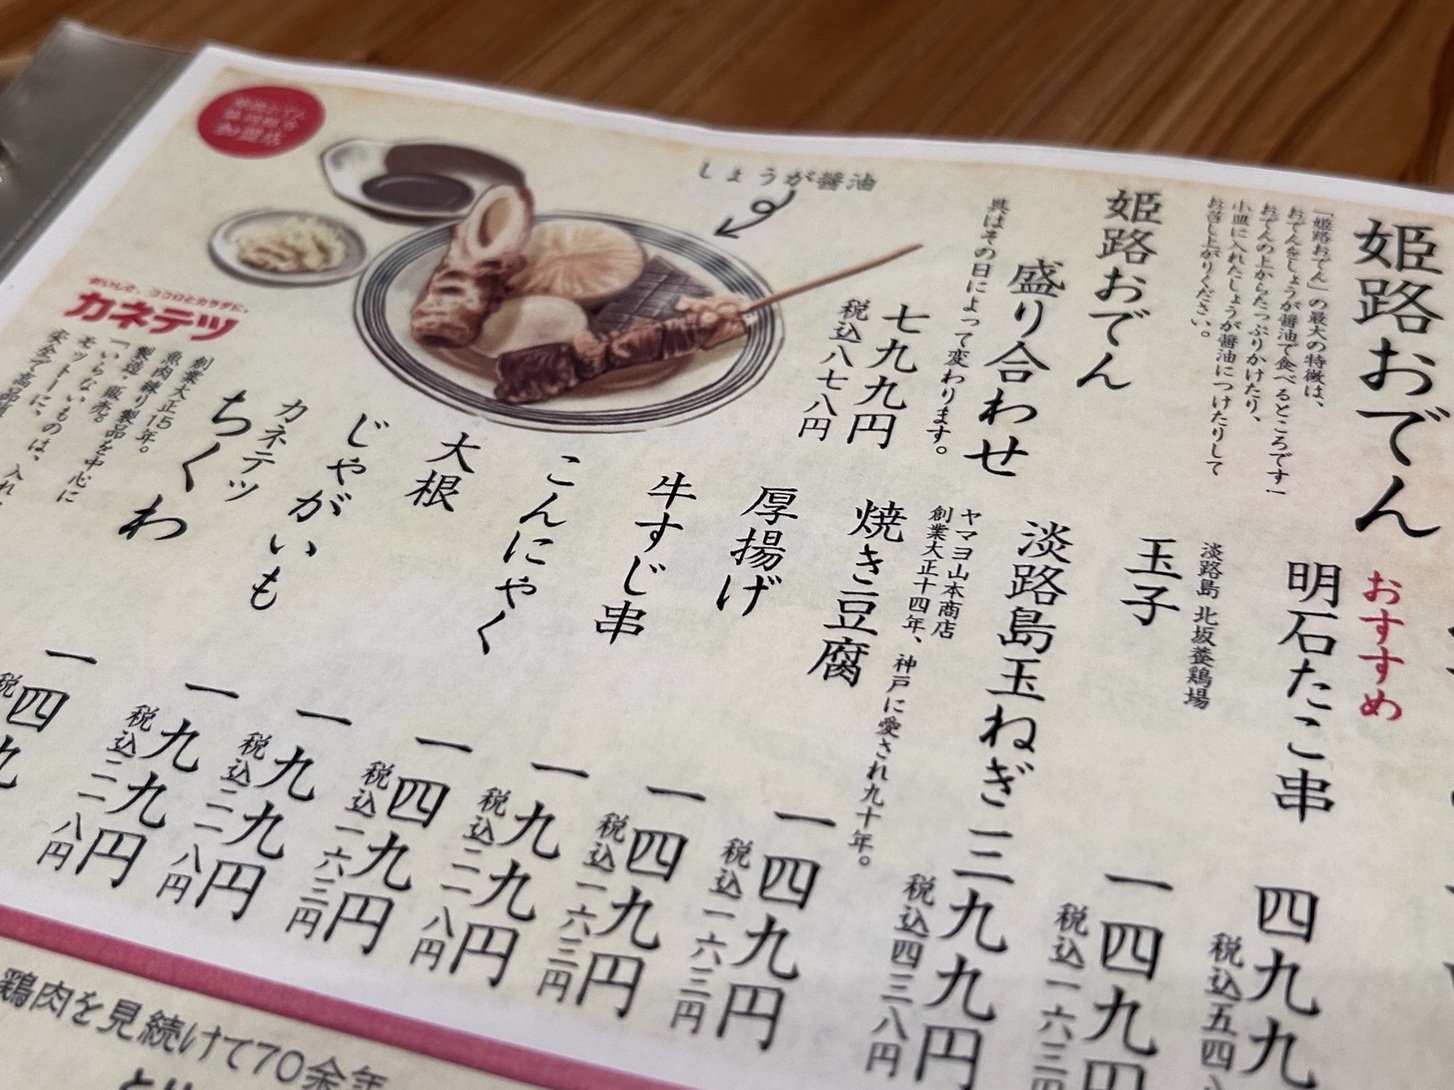 姫路おでん
「姫路おでん」の最大の特徴は、
おでんをしょうが醤油で食べるところです!
おでんの上からたっぷりかけたり、
小皿に入れたしょうが醤油につけたりして
お召し上がりください。
姫路おでん
盛り合わせ
具はその日によって変わります。
七九九円
税込八七八円
しょうが醤油
加盟店
おいしさ、ココロとカラダに。
カネテツ
創業大正15年。
魚肉練り製品を中心に
製造・販売。
「いらないものは、入れ
モットーに、
安全で高品質
おすすめ
明石たこ串
四九九
税込五四
淡路島 北坂養鶏場
玉子
一四九円
税込一六三円
淡路島玉ねぎ
三九九円
税込四三八円
ヤマヨ山本商店
創業大正十四年、神戸に愛され九十年。
焼き豆腐
一四九円
税込一六三円
厚揚げ
一四九円
税込一六三円
牛すじ串
一九九円
税込二一八円
こんにゃく
一四九円
税込一六三円
大根
一九九円
税込二一八円
じゃがいも
一九九円
税込二一八円
カネテツ
ちくわ
一四九
税
鶏肉を見続けて70余年